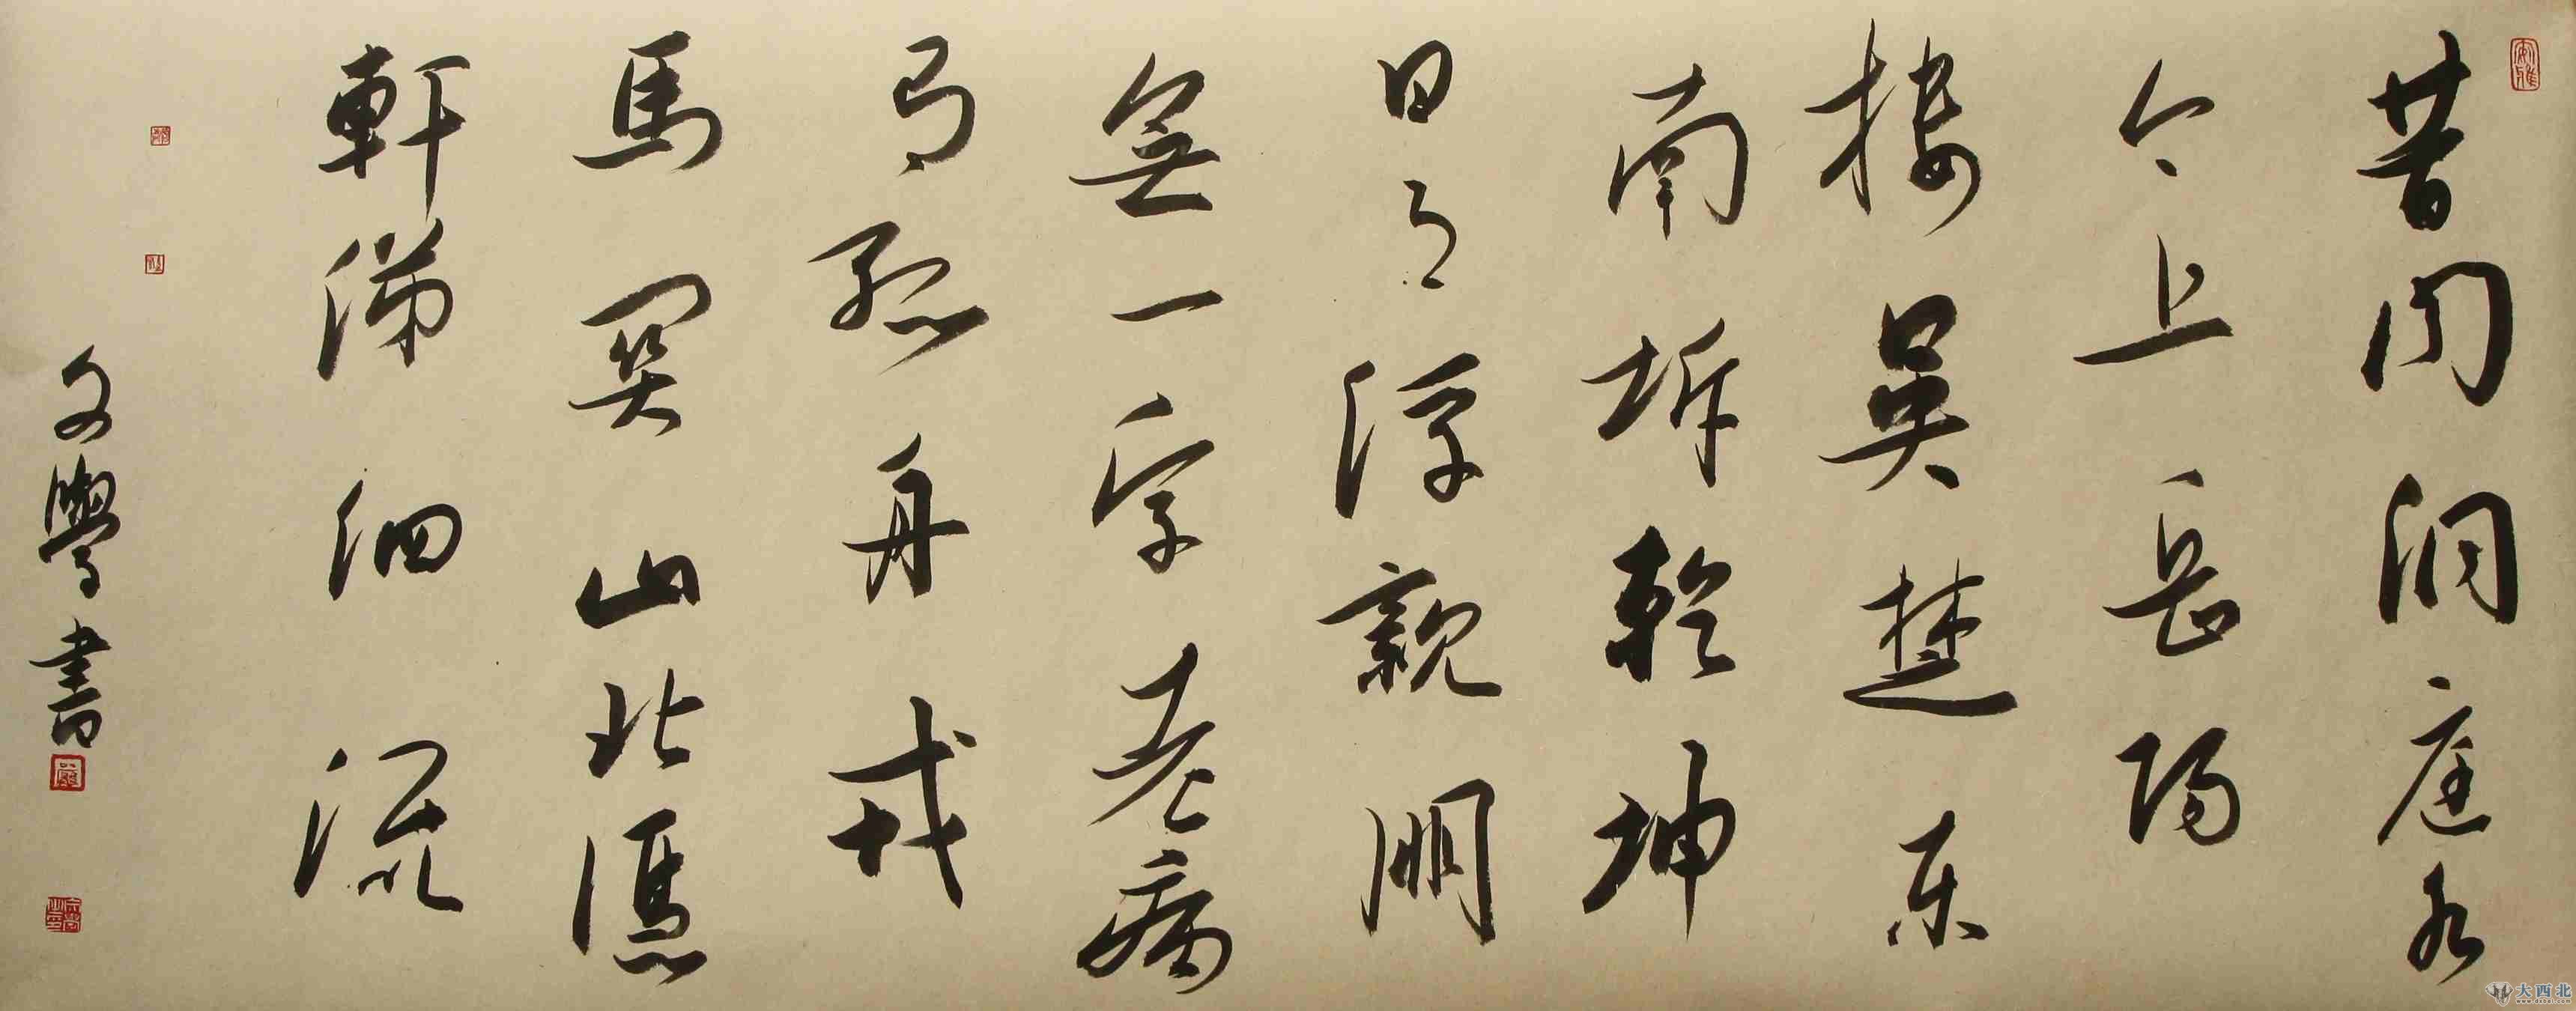 昔闻洞庭水
今上岳陽
楼吴楚东
南坼乾坤
日夜浮親朋
無一字老病
有孤舟戎
馬関山北憑
軒涕泗流
文學書
大西北